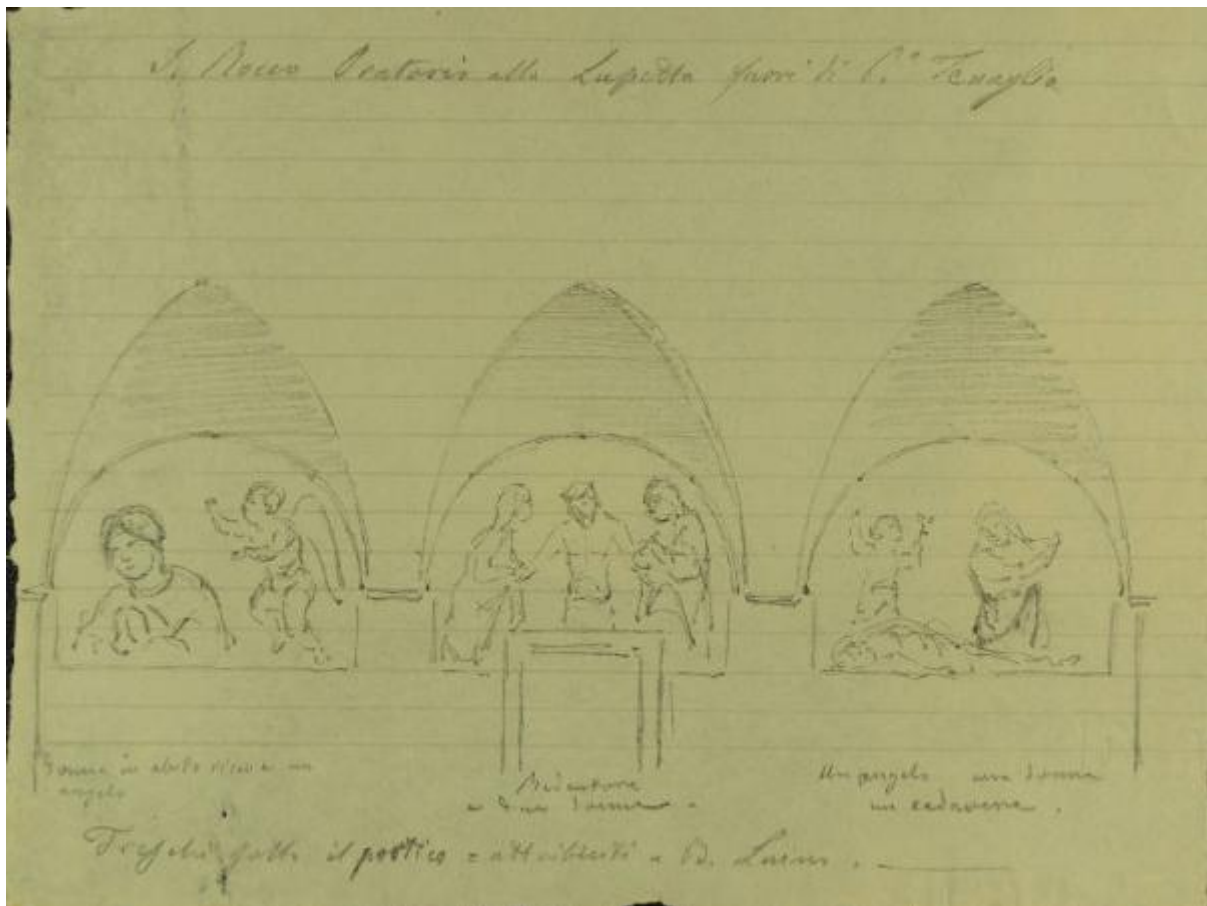 S. Rocco Oratorio alla Lupetta fuori di P.a Tenaglia
Donna in abito ricco e un
angelo
Redentore
e due donne .
Un angelo una donna
un cadavere .
Freschi sotto il portico = attribuiti a B. Luini .